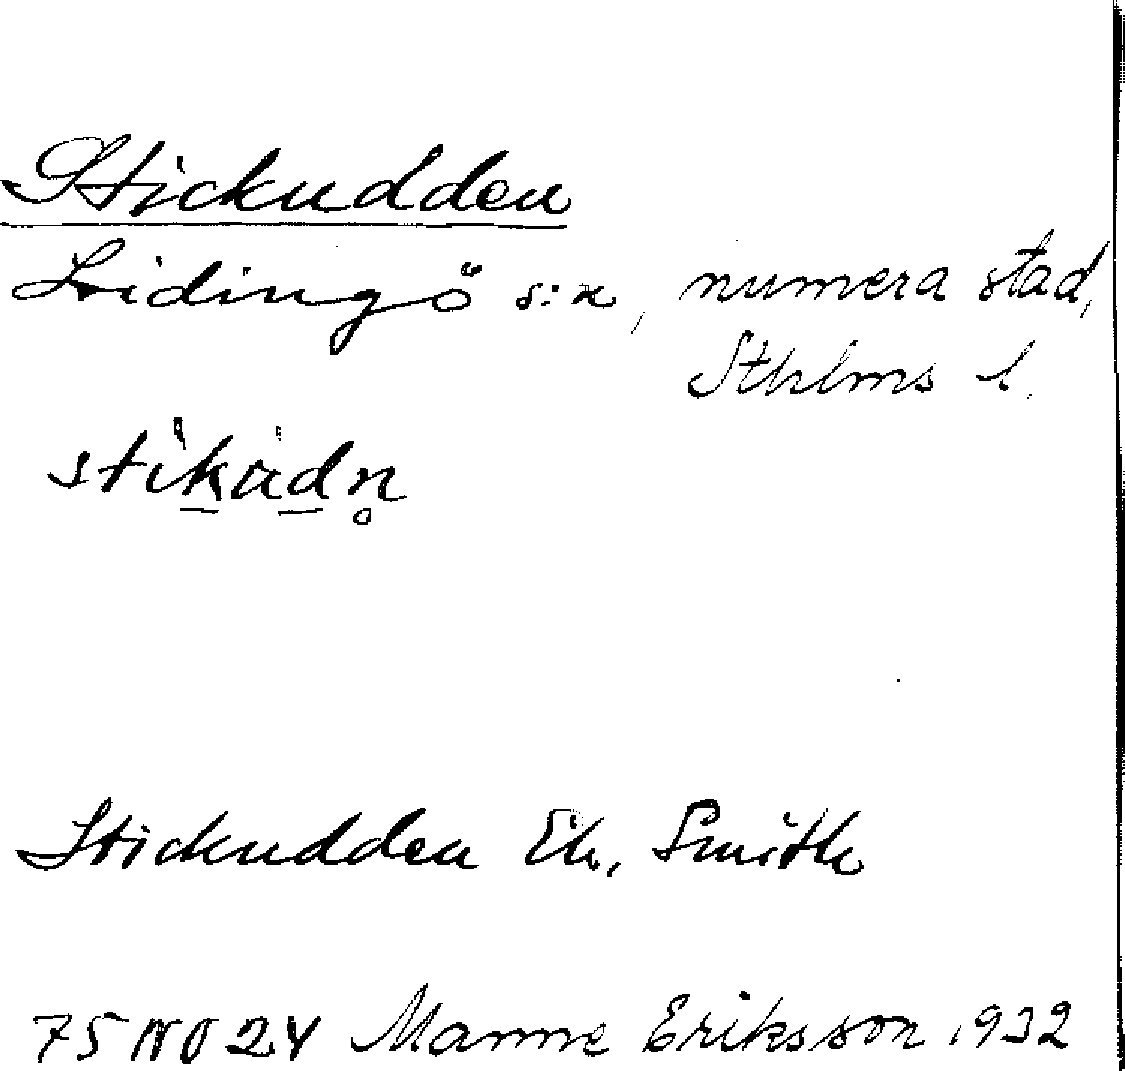 Stickudden
Lidingö s:n, numera stad,
Sthlms l.
Stickudden Ek, Smith
75 NO 24 Manne Eriksson 1932